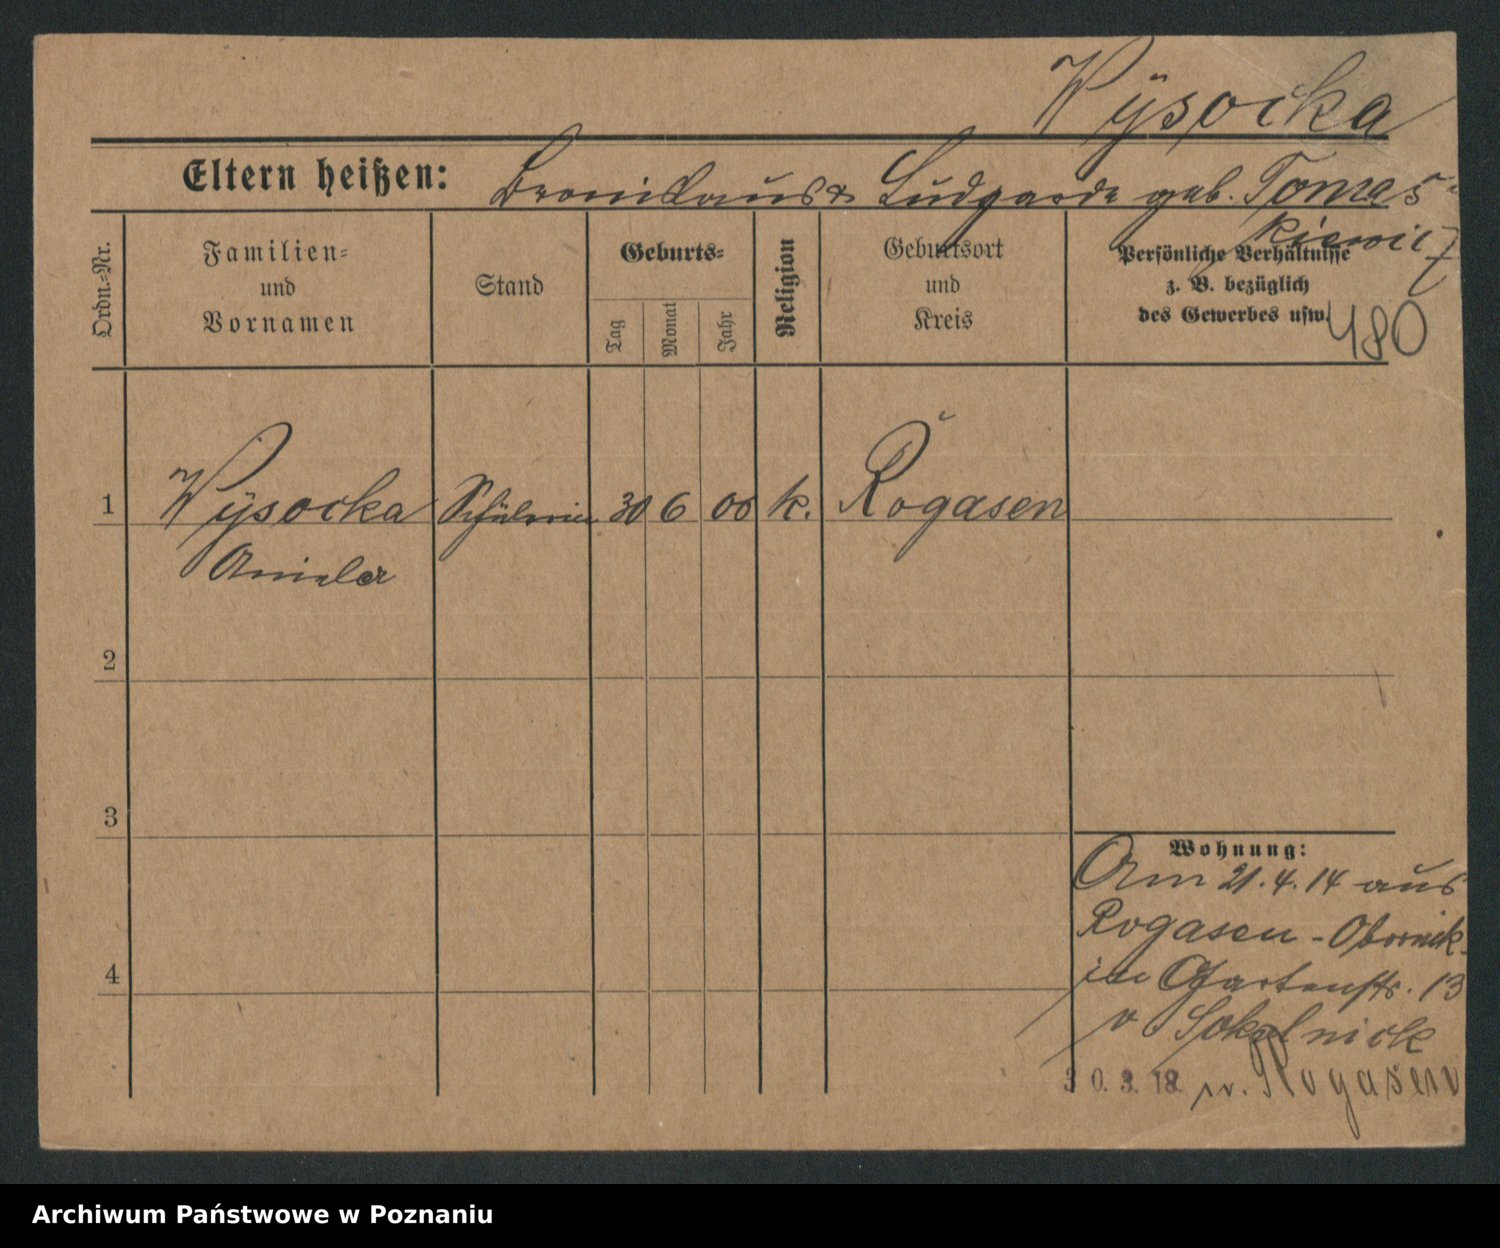 Wÿsocka
Eltern heißen: Bronislaus & Ludgarda geb. Tomas-
kiewicz
Ordn.-Nr.
Familien-
und
Vornamen
Stand
Geburts-
Tag
Monat
Jahr
Religion
Geburtsort
und
Kreis
Persönliche Verhältnisse
z. B. bezüglich
des Gewerbes usw.
480
1 Wÿsocka Schülerin 30 6 00 k. Rogasen
Aniela
2
3
4
Wohnung:
Am 21.4.14 aus
Rogasen - Obornik
in Gartenstr. 13
b Sokolnick
30.3.18. n. Rogasen
Archiwum Państwowe w Poznaniu